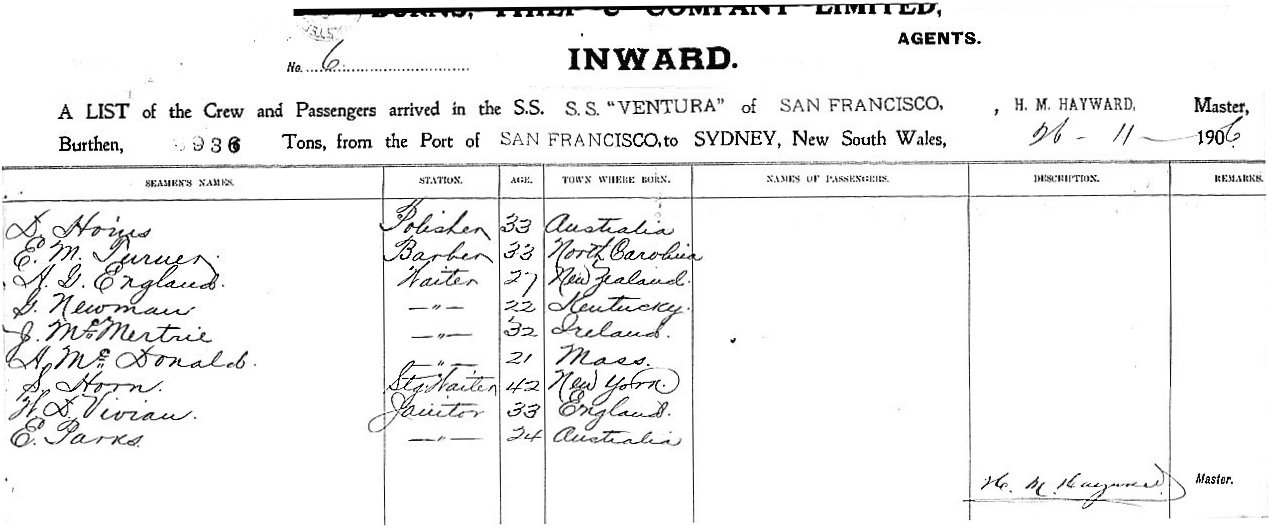 BURNS, PHILP & COMPANY LIMITED,
AGENTS.
No. 6
INWARD.
A LIST of the Crew and Passengers arrived in the S.S. S.S. "VENTURA" of SAN FRANCISCO, , H. M. HAYWARD, Master,
Burthen, 3936 Tons, from the Port of SAN FRANCISCO, to SYDNEY, New South Wales, 26 - 11 - 1906
SEAMEN'S NAMES. STATION. AGE. TOWN WHERE BORN. NAMES OF PASSENGERS. DESCRIPTION. REMARKS.
D. Polisher 33 Australia
E. M. Turner Barber 33 North Carolina
A. G. England. Waiter 27 New Zealand.
G. Newman —"— 22 Kentucky.
J. McMertrie —"— 32 Ireland.
A. McDonald. —"— 21 Mass.
S. Horn. Stg Waiter 42 New York.
W. D. Vivian. Janitor 33 England.
E. Parks. —"— 24 Australia
H. M. Hayward Master.